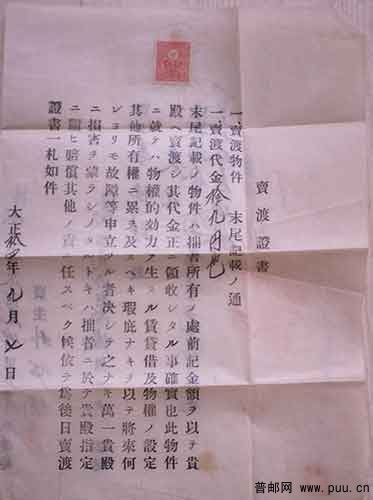 賣渡證書
一、賣渡物件 末尾記載ノ通
一、賣渡代金拾九円也
末尾記載ノ物件ハ拙者所有ノ處前記金額ヲ以テ貴
殿ヘ賣渡シ其代金正ニ領收シタル事確實也此物件
ニ就テハ物權的効力ヲ生スル賃貸借及物權ノ設定
其他所有權ニ累ヲ及スヘキ瑕疵ナキヲ以テ將來何
レヨリモ故障等申立ツル者決シテ之ナキ萬一貴殿
ニ損害ヲ蒙ラシメタルトキハ拙者ニ於テ貴殿指定
ニ隨ヒ賠償其他ノ責ニ任スヘク候依テ為後日賣渡
證書一札如件
大正拾年九月日
普邮网 www.puu.cn